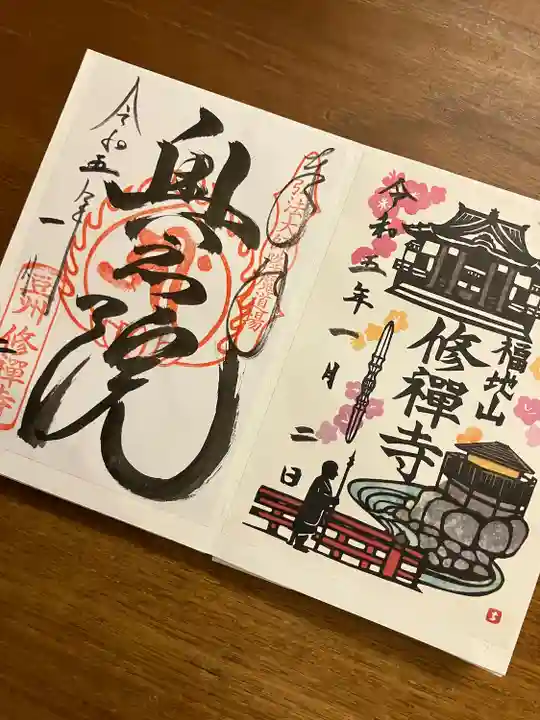 令和五年一月二日
福地山
修禪寺
奉拝
弘法大師
降魔道場
奥之院
令和五年一月二
豆州 修禪寺